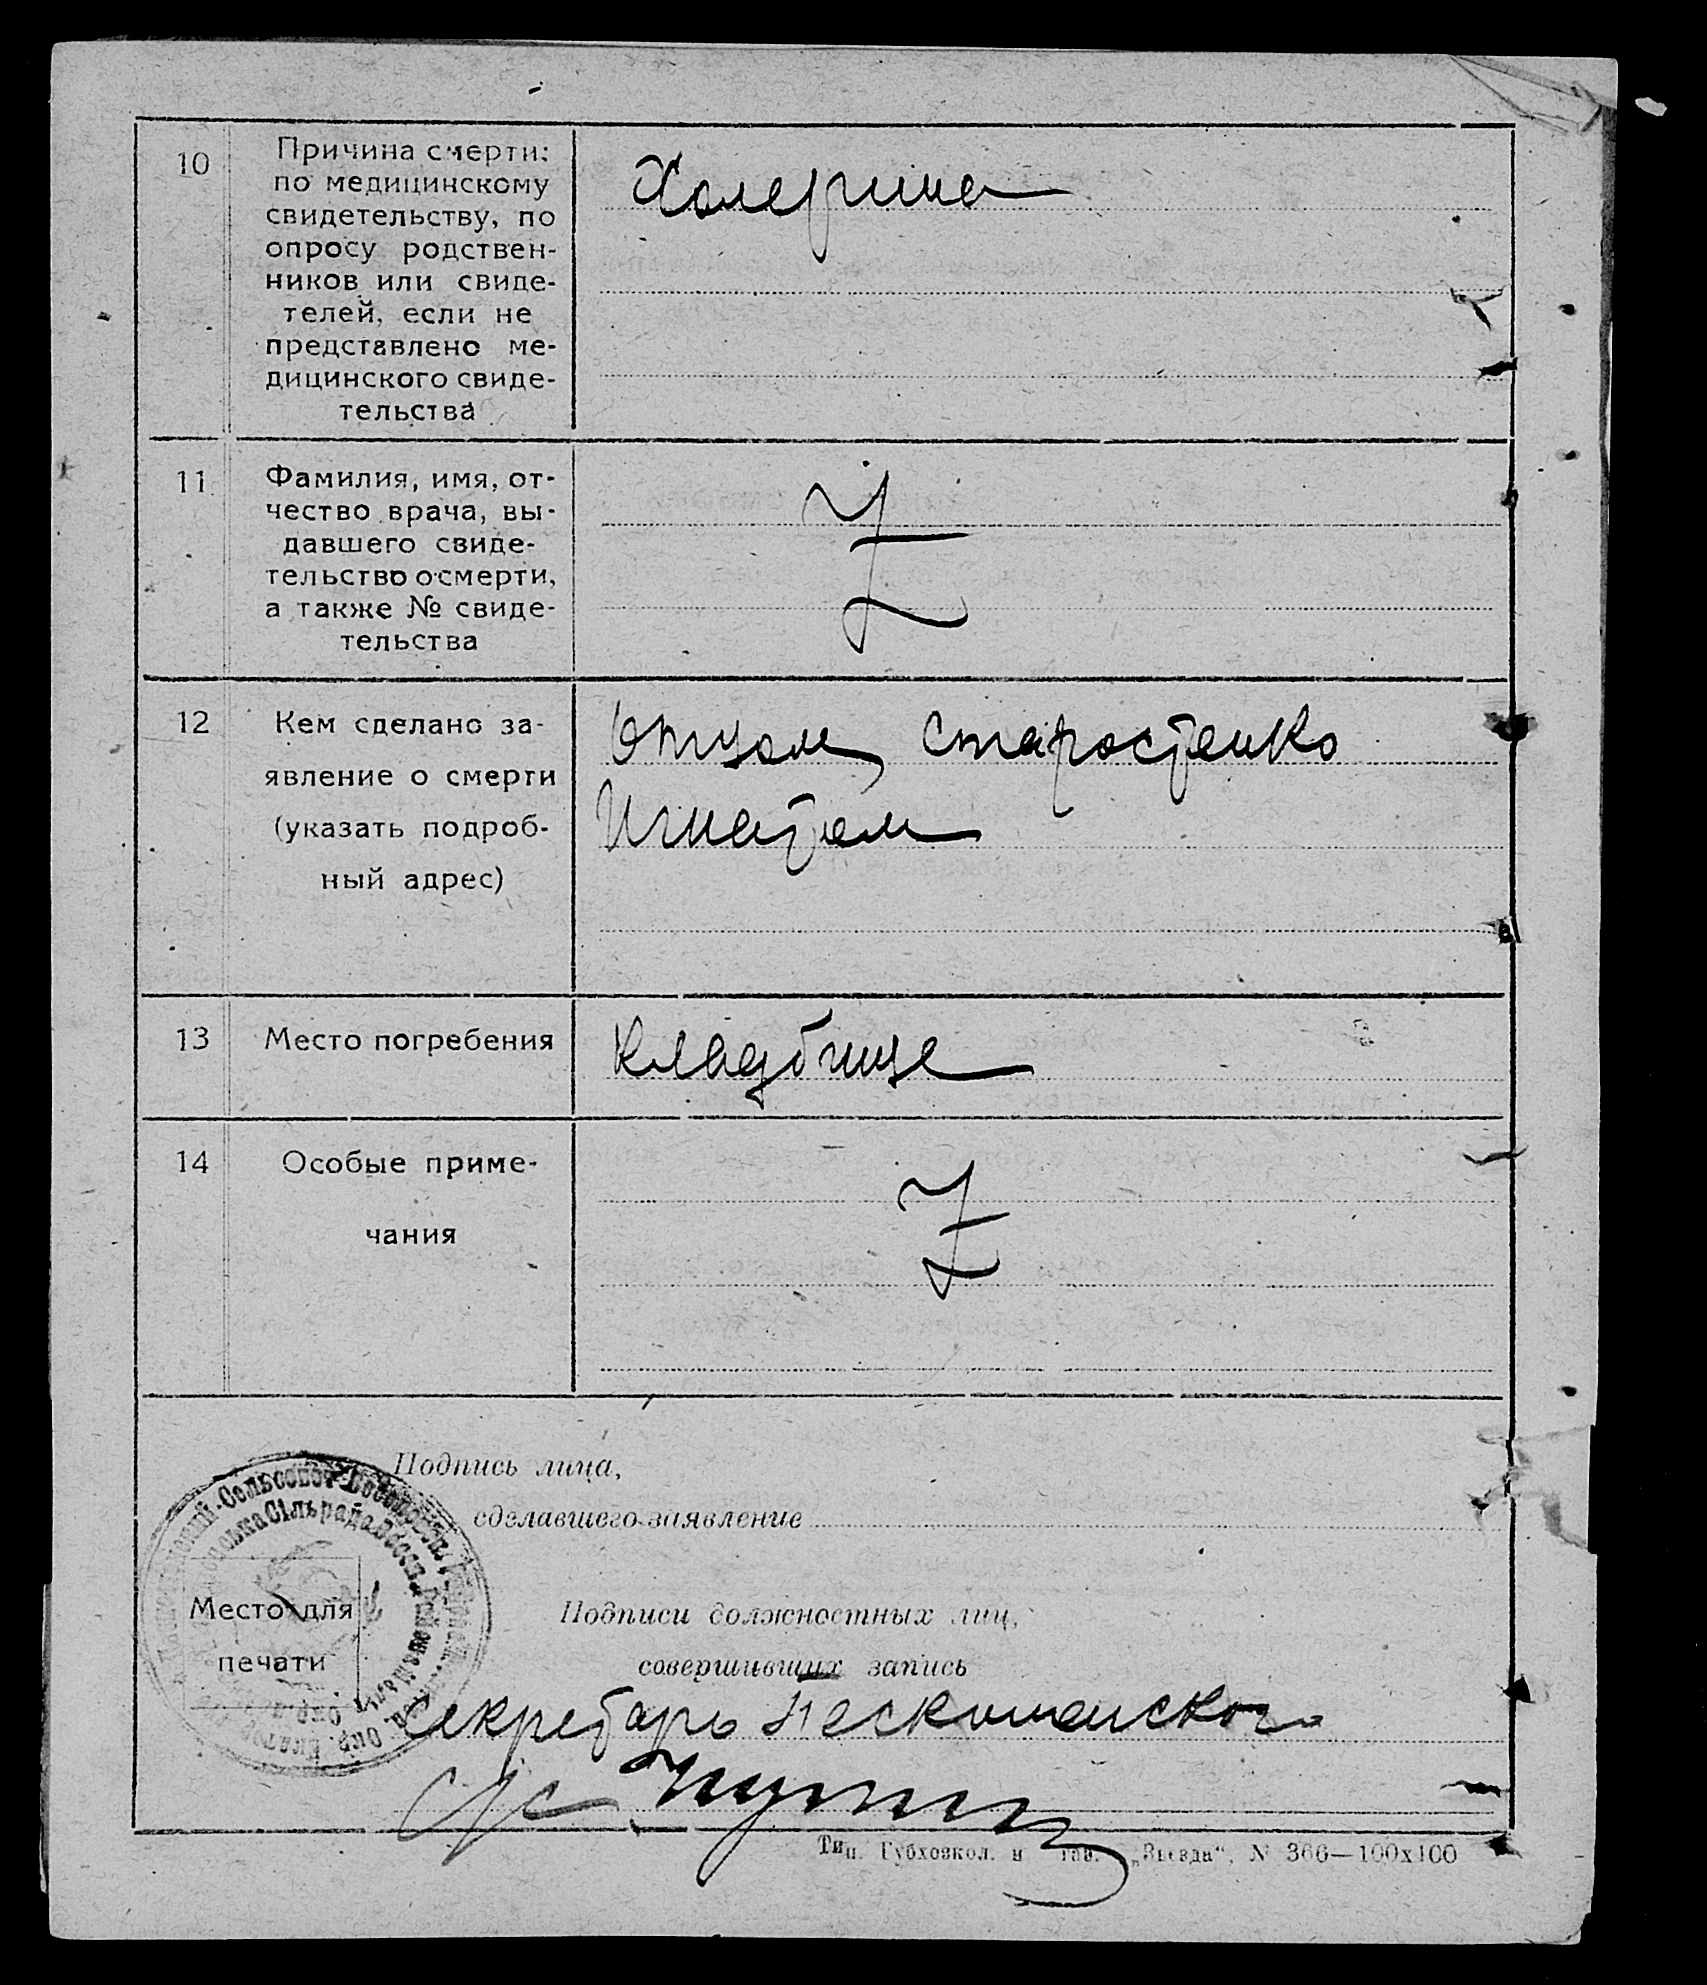 10
Причина смерти:
по медицинскому
свидетельству, по
опросу родствен-
ников или свиде-
телей, если не
представлено ме-
дицинского свиде-
тельства
Холерина
11
Фамилия, имя, от-
чество врача, вы-
давшего свиде-
тельство о смерти,
а также № свиде-
тельства
Z
12
Кем сделано за-
явление о смерти
(указать подроб-
ный адрес)
Отцом Старостенко
Игнатом
13
Место погребения
Кладбище
14
Особые приме-
чания
Z
Подпись лица,
сделавшего заявление
Сельсовет
Сільрада
Место для
печати
Подписи должностных лиц,
совершивших запись
Секретарь
с/с
Тип. Губхозкол. и „Звезда“, № 366—100х100